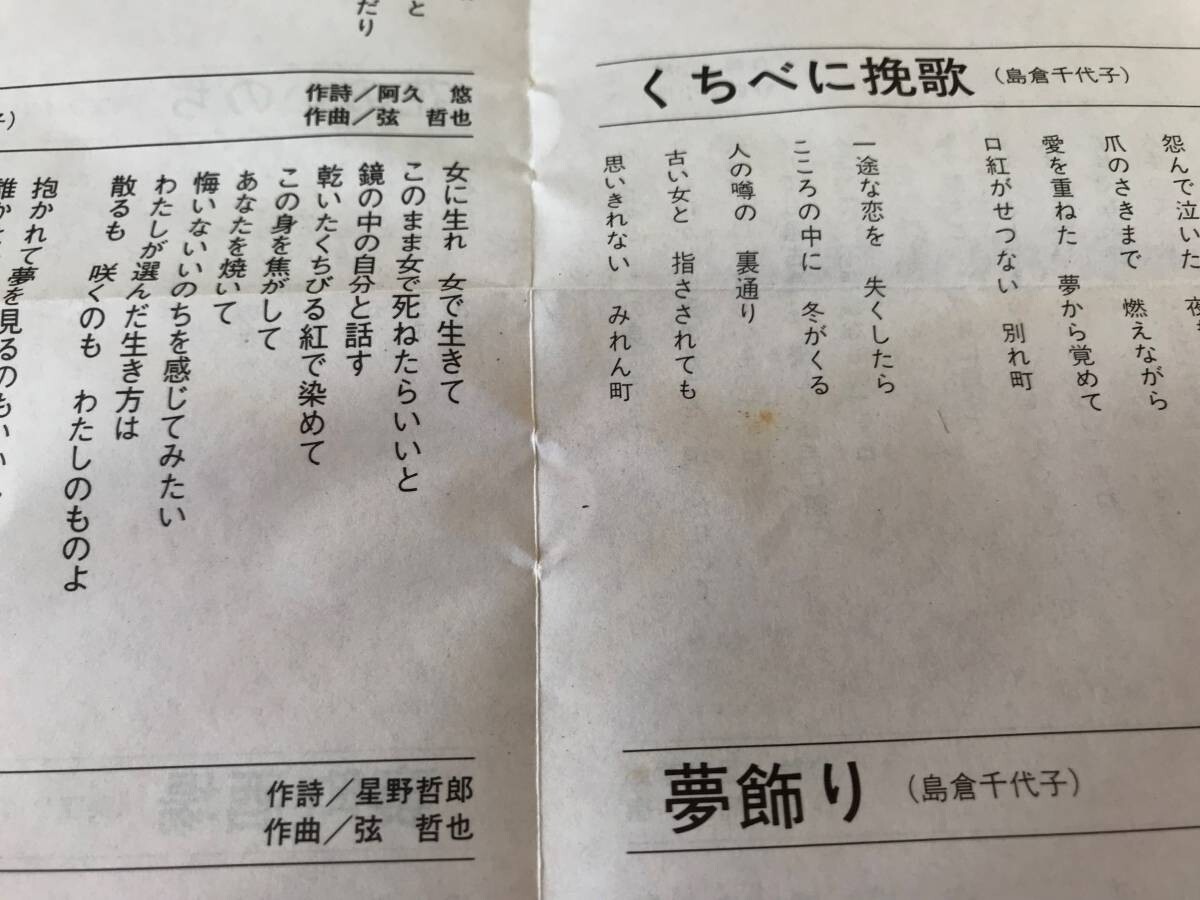 くちべに挽歌（島倉千代子）
怨んで泣いた　夜
爪のさきまで　燃えながら
愛を重ねた　夢から覚めて
口紅がせつない　別れ町
一途な恋を　失くしたら
こころの中に　冬がくる
人の噂の　裏通り
古い女と　指さされても
思いきれない　みれん町
夢飾り（島倉千代子）
と
だり
作詩／阿久　悠
作曲／弦　哲也
女に生れ　女で生きて
このまま女で死ねたらいいと
鏡の中の自分と話す
乾いたくちびる紅で染めて
この身を焦がして
あなたを焼いて
悔いないいのちを感じてみたい
わたしが選んだ生き方は
散るも　咲くのも　わたしのものよ
抱かれて夢を見るのもいい
誰か
作詩／星野哲郎
作曲／弦　哲也